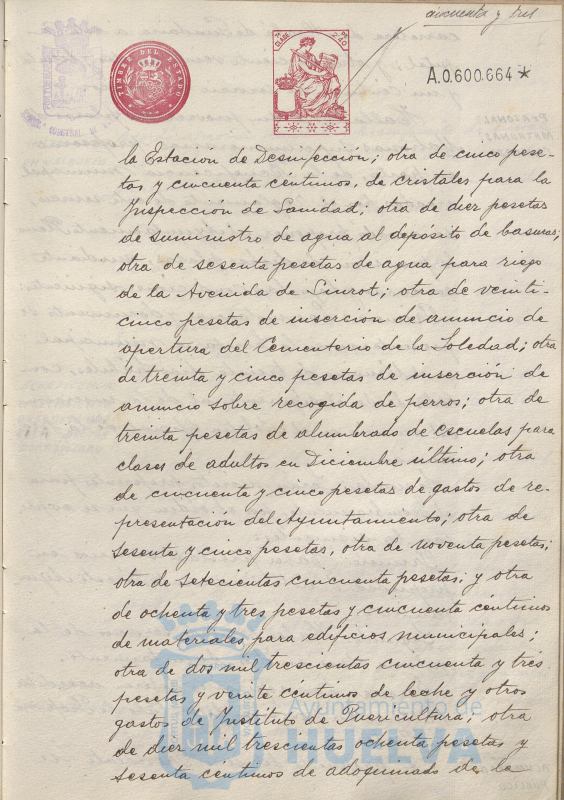 cincuenta y tres
TIMBRE DEL ESTADO
A.0.600.664*
la Estación de Desinfección; otra de cinco pese-
tas y cincuenta céntimos, de cristales para la
Inspección de Sanidad; otra de diez pesetas
de suministro de agua al depósito de basuras;
otra de sesenta pesetas de agua para riego
de la Avenida de Siurot; otra de veinti-
cinco pesetas de inserción de anuncio de
apertura del Cementerio de la Soledad; otra
de treinta y cinco pesetas de inserción de
anuncio sobre recogida de perros; otra de
treinta pesetas de alumbrado de escuelas para
clases de adultos en Diciembre último; otra
de cincuenta y cinco pesetas de gastos de re-
presentación del Ayuntamiento; otra de
sesenta y cinco pesetas, otra de noventa pesetas;
otra de setecientas cincuenta pesetas; y otra
de ochenta y tres pesetas y cincuenta céntimos
de materiales para edificios municipales;
otra de dos mil trescientas cincuenta y tres
pesetas y veinte céntimos de leche y otros
gastos de Instituto de Puericultura; otra
de diez mil trescientas ochenta pesetas y
sesenta céntimos de adoquinado de la
Ayuntamiento de
HUELVA